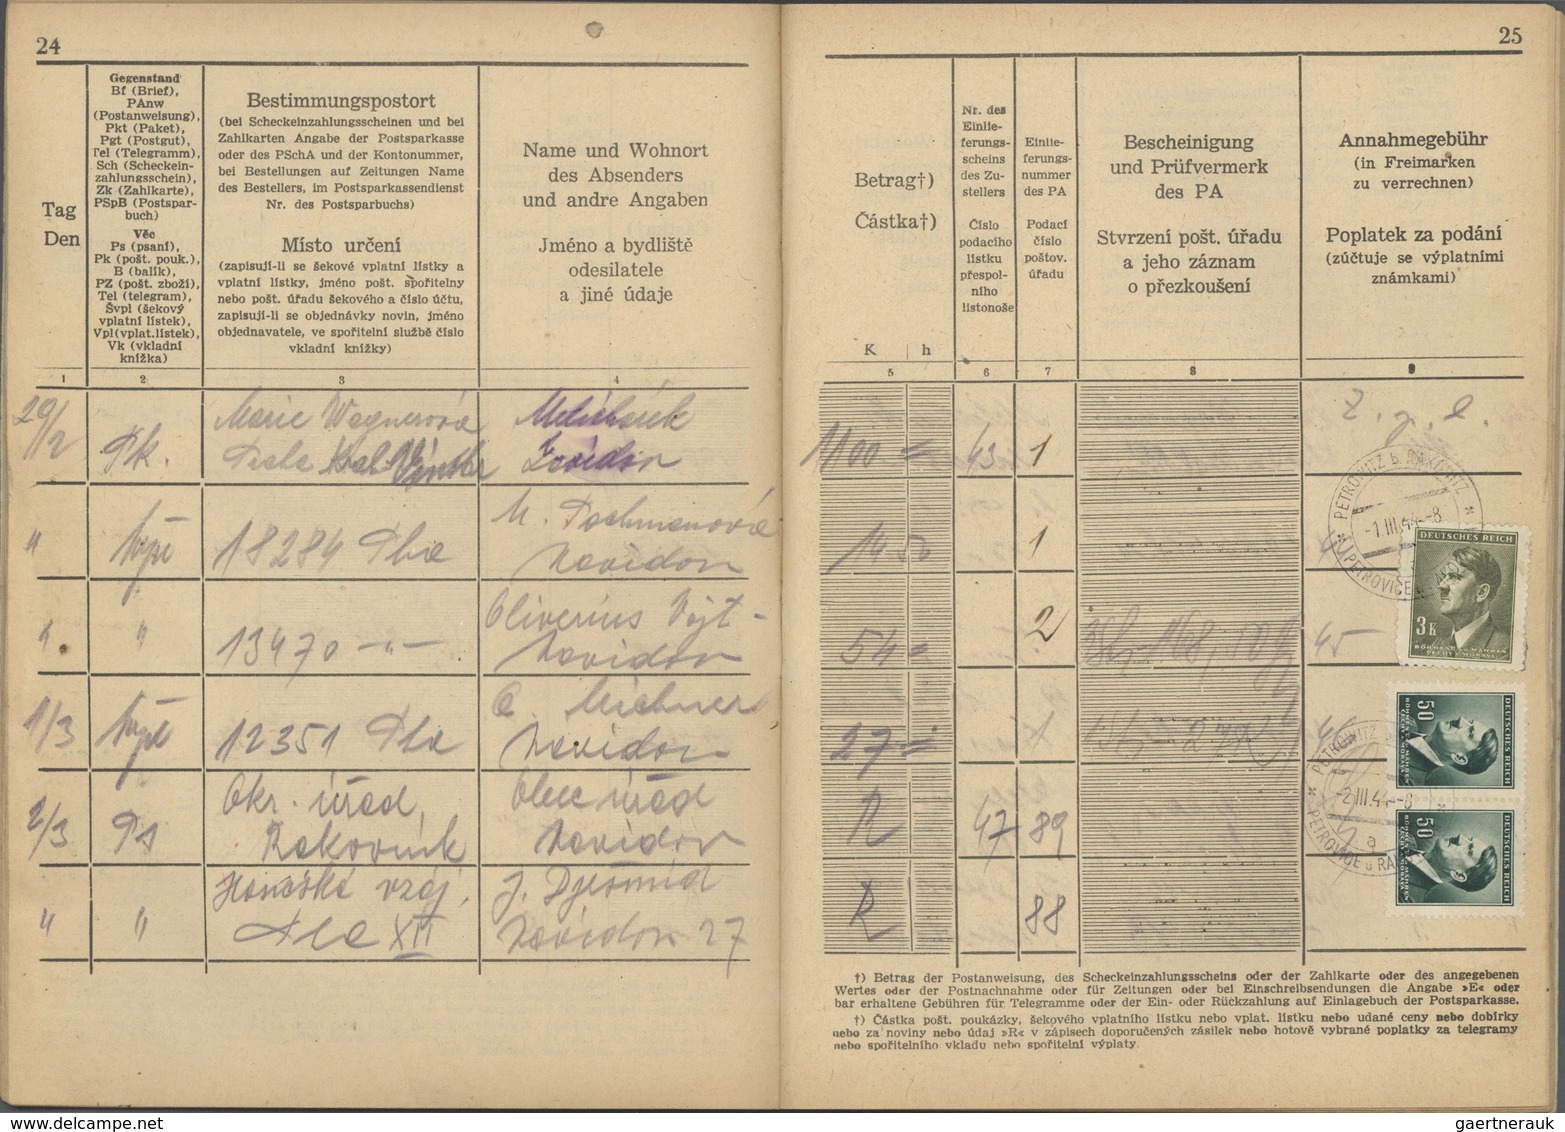 24
Tag
Den
Gegenstand
Bf (Brief),
PAnw
(Postanweisung),
Pkt (Paket),
Pgt (Postgut),
Tel (Telegramm),
Sch (Scheckein-
zahlungsschein),
Zk (Zahlkarte),
PSpB (Postspar-
buch)
Věc
Ps (psaní),
Pk (pošt. pouk.),
B (balík),
PZ (pošt. zboží),
Tel (telegram),
Švpl (šekový
vplatní lístek),
Vpl(vplat.lístek),
Vk (vkladní
knížka)
Bestimmungspostort
(bei Scheckeinzahlungsscheinen und bei
Zahlkarten Angabe der Postsparkasse
oder des PSchA und der Kontonummer,
bei Bestellungen auf Zeitungen Name
des Bestellers, im Postsparkassendienst
Nr. des Postsparbuchs)
Místo určení
(zapisují-li se šekové vplatní lístky a
vplatní lístky, jméno pošt. spořitelny
nebo pošt. úřadu šekového a číslo účtu,
zapisují-li se objednávky novin, jméno
objednavatele, ve spořitelní službě číslo
vkladní knížky)
Name und Wohnort
des Absenders
und andre Angaben
Jméno a bydliště
odesilatele
a jiné údaje
1 2 3 4
29/2 Pk. Marie Wagnerová
Zavidov
" 18284 Pha
Zavidov
" " 13470 -"- Oliverius Vojt-
Zavidov
1/3 12351 Pha
Zavidov
2/3 Ps Okr. úřad, Obec. úřad
Rakovník Zavidov
" " Hasičská vzáj.
XII Zavidov 27
25
Betrag†)
Částka†)
K h
Nr. des
Einlie-
ferungs-
scheins
des Zu-
stellers
Číslo
podacího
lístku
přespol-
ního
listonoše
Einlie-
ferungs-
nummer
des PA
Podací
číslo
poštov.
úřadu
Bescheinigung
und Prüfvermerk
des PA
Stvrzení pošt. úřadu
a jeho záznam
o přezkoušení
Annahmegebühr
(in Freimarken
zu verrechnen)
Poplatek za podání
(zúčtuje se výplatními
známkami)
5 6 7 8 9
1100 = 43 1
14 50 1
54 = 2
27 = 1
R 47 89
R 88
PETROWITZ b. RAKONITZ
-1.III.44-8
DEUTSCHES REICH
3 K
BÖHMEN u. MÄHREN
ČECHY a MORAVA
DEUTSCHES REICH
50
BÖHMEN u. MÄHREN
ČECHY a MORAVA
-2.III.44-8
a
DEUTSCHES REICH
50
BÖHMEN u. MÄHREN
ČECHY a MORAVA
†) Betrag der Postanweisung, des Scheckeinzahlungsscheins oder der Zahlkarte oder des angegebenen
Wertes oder der Postnachnahme oder für Zeitungen oder bei Einschreibsendungen die Angabe »E« oder
bar erhaltene Gebühren für Telegramme oder der Ein- oder Rückzahlung auf Einlagebuch der Postsparkasse.
†) Částka pošt. poukázky, šekového vplatního lístku nebo vplat. lístku nebo udané ceny nebo dobírky
nebo za noviny nebo údaj »R« v zápisech doporučených zásilek nebo hotově vybrané poplatky za telegramy
nebo spořitelního vkladu nebo spořitelní výplaty.
www.delcampe.net
gaertnerauk